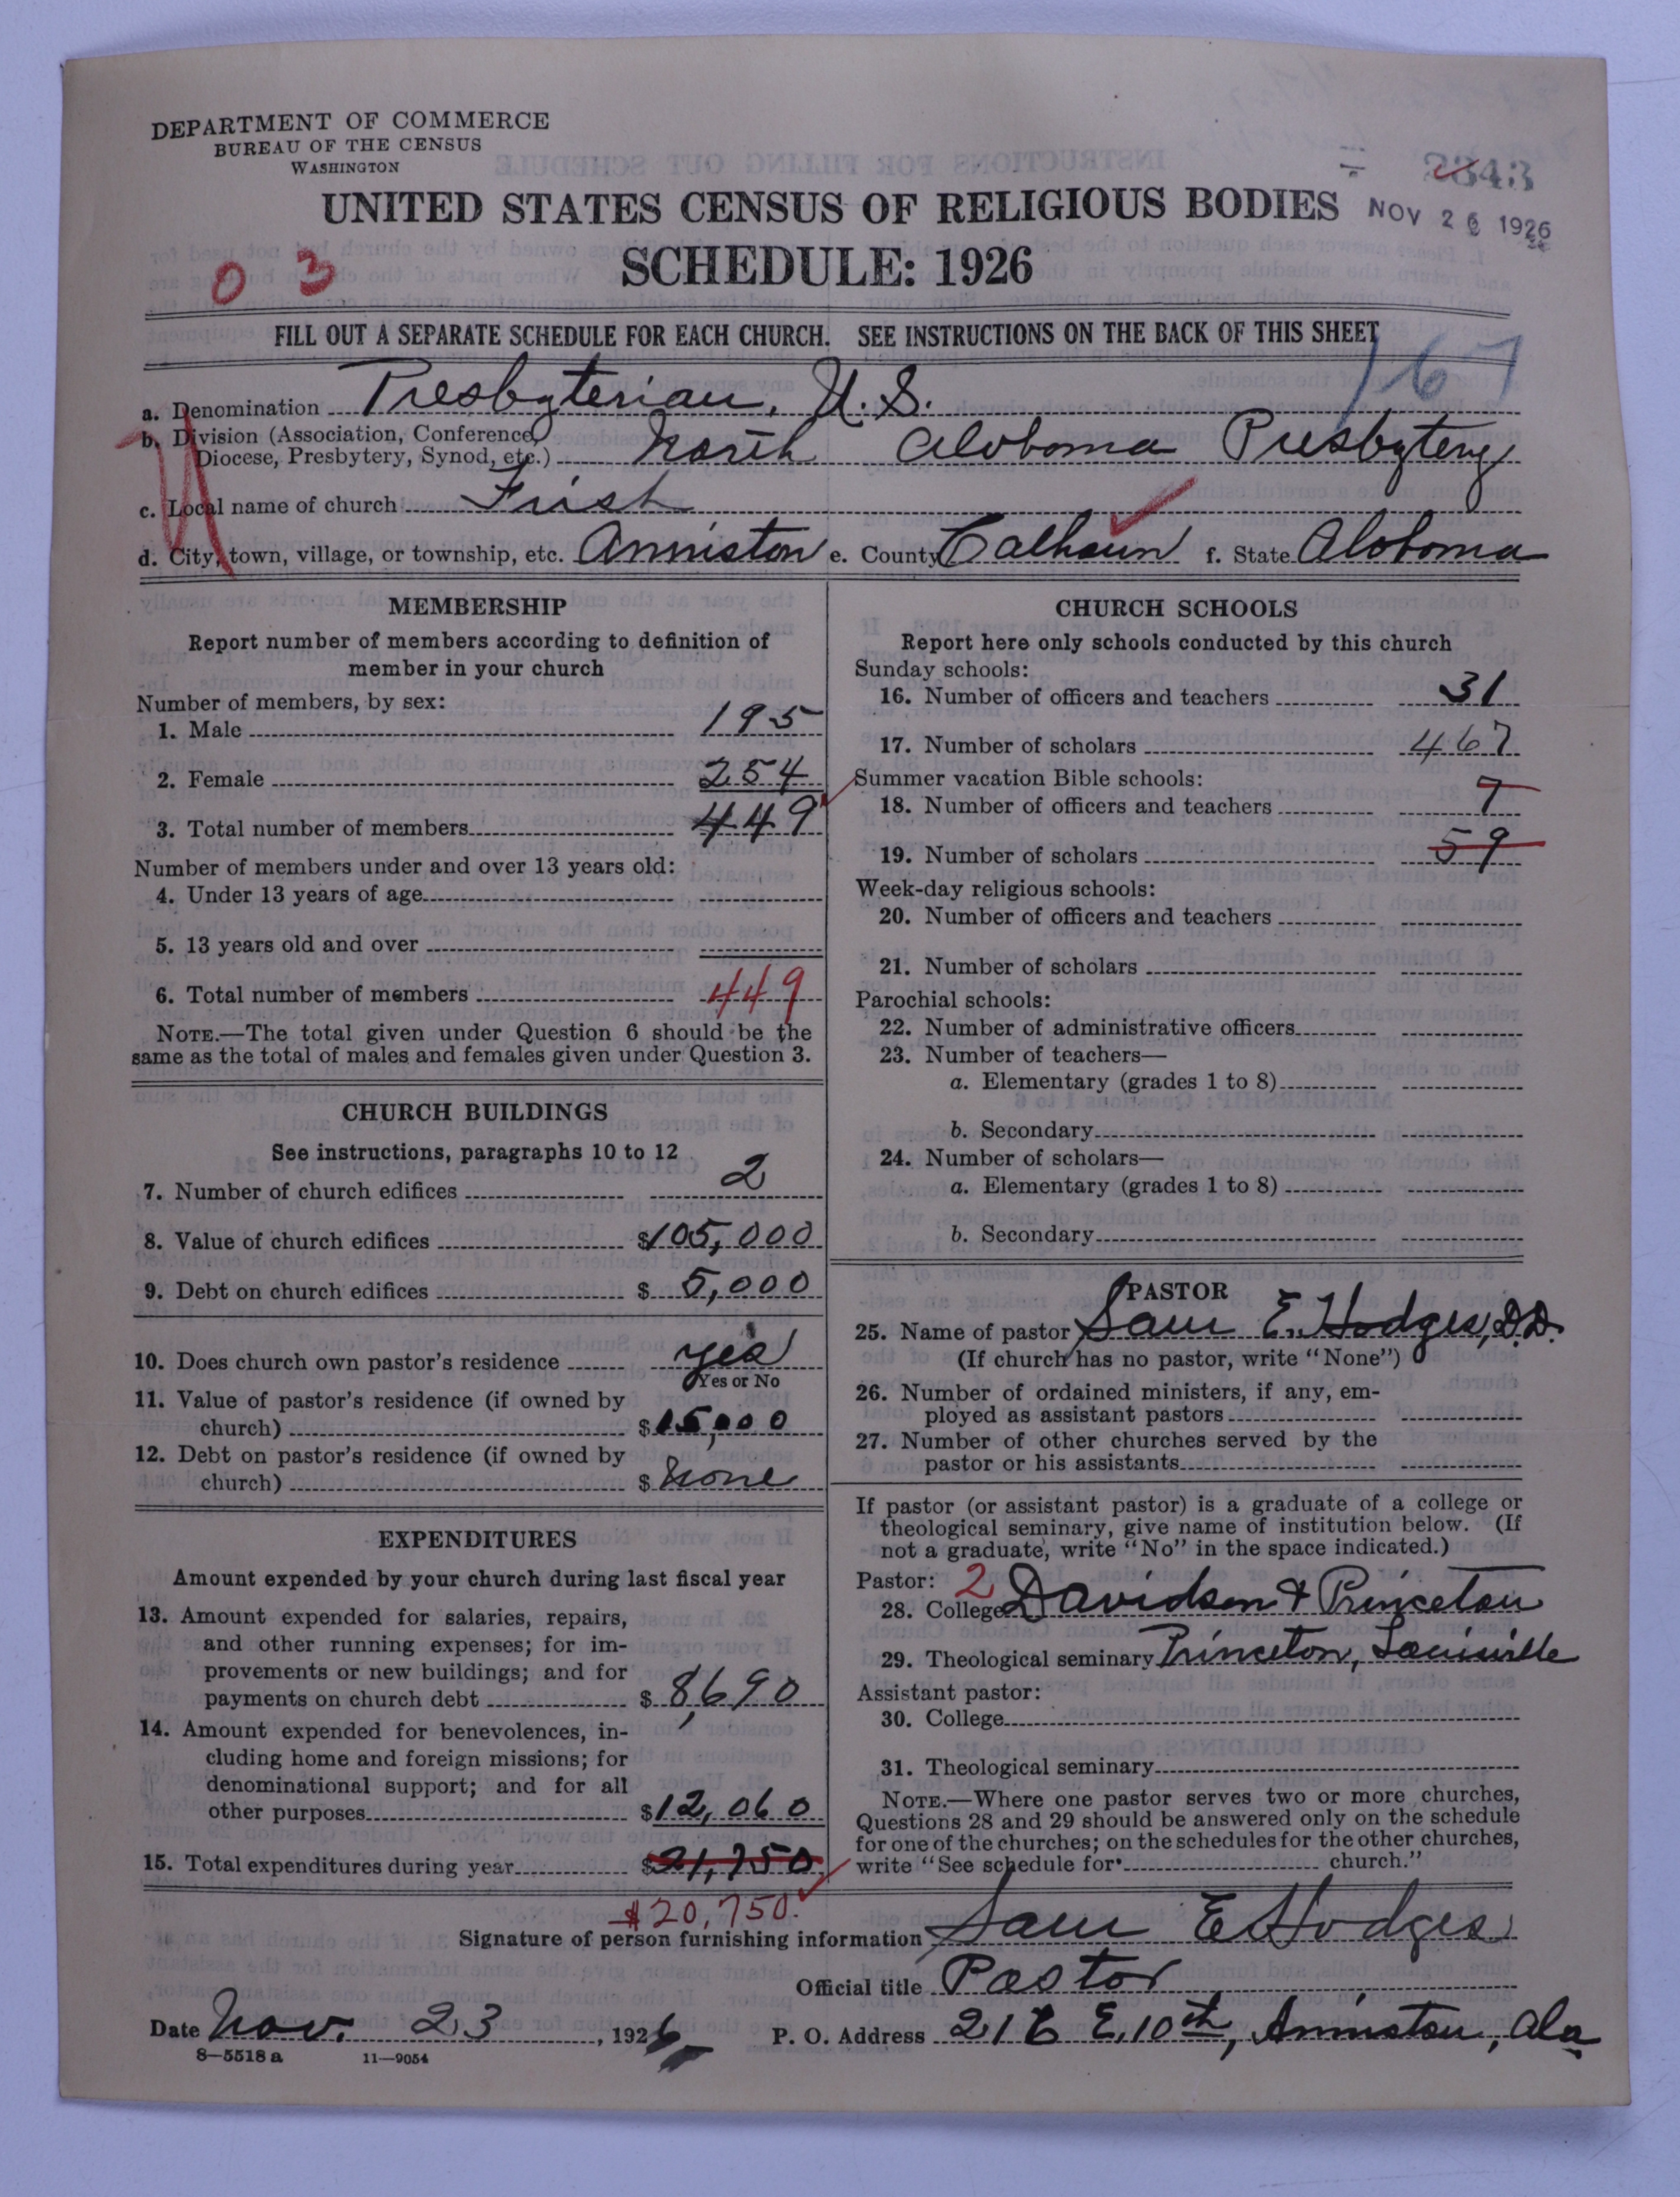 DEPARTMENT OF COMMERCE
BUREAU OF THE CENSUS
WASHINGTON
2343
NOV 26 1926
UNITED STATES CENSUS OF RELIGIOUS BODIES
SCHEDULE: 1926
0 3
FILL OUT A SEPARATE SCHEDULE FOR EACH CHURCH. SEE INSTRUCTIONS ON THE BACK OF THIS SHEET
167
a. Denomination Presbyterian, U.S.
b. Division (Association, Conference, Diocese, Presbytery, Synod, etc.) North Alabama Presbytery
c. Local name of church First
d. City, town, village, or township, etc. Anniston e. County Calhoun f. State Alabama
MEMBERSHIP
Report number of members according to definition of
member in your church
Number of members, by sex:
1. Male 195
2. Female 254
3. Total number of members 449
Number of members under and over 13 years old:
4. Under 13 years of age
5. 13 years old and over
6. Total number of members 449
NOTE.—The total given under Question 6 should be the
same as the total of males and females given under Question 3.
CHURCH BUILDINGS
See instructions, paragraphs 10 to 12
7. Number of church edifices 2
8. Value of church edifices $105,000
9. Debt on church edifices $ 5,000
10. Does church own pastor's residence yes
Yes or No
11. Value of pastor's residence (if owned by
church) $15,000
12. Debt on pastor's residence (if owned by
church) $ None
EXPENDITURES
Amount expended by your church during last fiscal year
13. Amount expended for salaries, repairs,
and other running expenses; for im-
provements or new buildings; and for
payments on church debt $ 8,690
14. Amount expended for benevolences, in-
cluding home and foreign missions; for
denominational support; and for all
other purposes $12,060
15. Total expenditures during year $21,750
$20,750.
CHURCH SCHOOLS
Report here only schools conducted by this church
Sunday schools:
16. Number of officers and teachers 31
17. Number of scholars 467
Summer vacation Bible schools:
18. Number of officers and teachers 7
19. Number of scholars 59
Week-day religious schools:
20. Number of officers and teachers
21. Number of scholars
Parochial schools:
22. Number of administrative officers
23. Number of teachers—
a. Elementary (grades 1 to 8)
b. Secondary
24. Number of scholars—
a. Elementary (grades 1 to 8)
b. Secondary
PASTOR
25. Name of pastor Sam E. Hodges, D.D.
(If church has no pastor, write "None")
26. Number of ordained ministers, if any, em-
ployed as assistant pastors
27. Number of other churches served by the
pastor or his assistants
If pastor (or assistant pastor) is a graduate of a college or
theological seminary, give name of institution below. (If
not a graduate, write "No" in the space indicated.)
Pastor: 2
28. College Davidson & Princeton
29. Theological seminary Princeton, Louisville
Assistant pastor:
30. College
31. Theological seminary
NOTE.—Where one pastor serves two or more churches,
Questions 28 and 29 should be answered only on the schedule
for one of the churches; on the schedules for the other churches,
write "See schedule for church."
Signature of person furnishing information Sam E Hodges
Official title Pastor
Date Nov. 23, 1926 P. O. Address E. 10th, Anniston, Ala
8—5518 a 11—9054